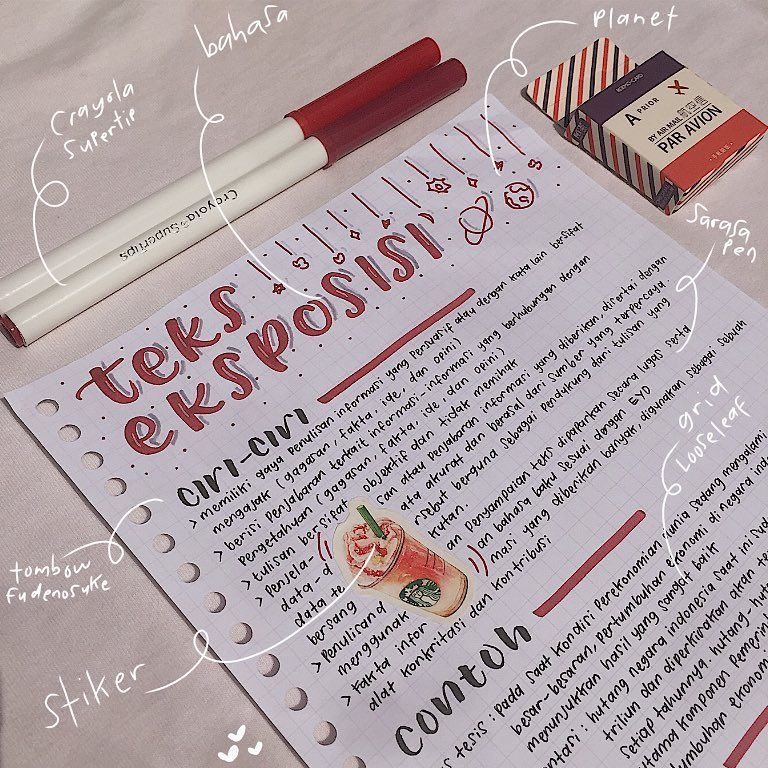 bahasa
Planet
Crayola
Supertip
Crayola Supertips
A PRIOR
BY AIR MAIL
PAR AVION
Sarasa
Pen
teks
eksposisi
ciri-ciri
> memiliki gaya penulisan informasi yang persuasif atau dengan kata lain bersifat
mengajak (gagasan, fakta, ide, dan opini)
> berisi penjabaran terkait informasi-informasi yang berhubungan dengan
pengetahuan (gagasan, fakta, ide, dan opini)
> tulisan bersifat objektif dan tidak memihak
> Penjela can atau penjabaran informasi yang diberikan, disertai dengan
data-d ata akurat dan berasal dari sumber yang terpercaya.
data te sebut berguna sebagai pendukung dari tulisan yang
bersang kutan.
> Penulisan d an penyampaian teks dipaparkan secara lugas serta
menggunak an bahasa baku sesuai dengan EYD
> Fakta infor masi yang diberikan banyak, digunakan sebagai sebuah
alat konkritasi dan kontribusi
grid
Looseleaf
tombow
Fudenosuke
Stiker
contoh
s tesis : pada saat kondisi perekonomian dunia sedang mengalami
besar-besaran, pertumbuhan ekonomi di negara ind
menunjukkan hasil yang sangat baik
entasi : hutang negara indonesia saat ini sud
triliun dan diperkirakan akan te
setiap tahunnya. hutang-hut
utama komponen pemerin
umbuhan ekonom